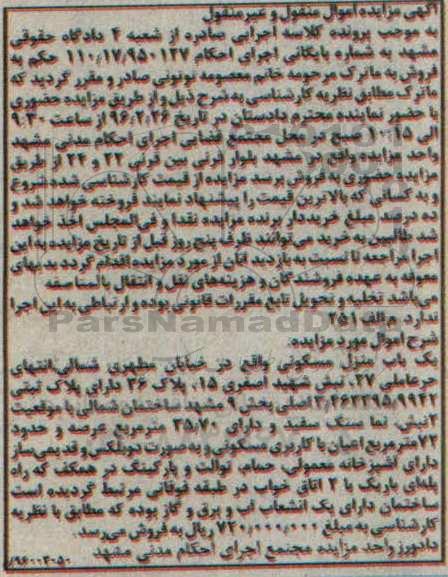 آگهی مزایده اموال منقول و غیرمنقول
به موجب پرونده کلاسه اجرایی صادره از شعبه ۴ دادگاه حقوقی
مشهد به شماره بایگانی اجرای احکام ۱۱۰/۱۷/۹۵۰۱۳۷ حکم به
فروش به ماترک مرحومه خانم معصومه تونونی صادر و مقرر گردید که
ماترک مطابق نظریه کارشناسی به شرح ذیل و از طریق مزایده حضوری
با حضور نماینده محترم دادستان در تاریخ ۹۶/۲/۲۶ از ساعت ۹.۳۰
الی ۱۰.۱۵ صبح در محل مجتمع قضایی اجرای احکام مدنی مشهد
واحد مزایده واقع در مشهد بلوار قرنی بین قرنی ۲۲ و ۲۴ از طریق
مزایده حضوری به فروش برسد مزایده از قیمت کارشناسی شده شروع
و به کسانی که بالاترین قیمت را پیشنهاد نمایند فروخته خواهد شد و
ده درصد مبلغ خریدار برنده مزایده نقدا و فی‌المجلس اخذ خواهد
شد طالبین به خرید می‌توانند ظرف پنج روز قبل از تاریخ مزایده به این
اجرا مراجعه تا نسبت به بازدید آنان از مورد مزایده اقدام گردد بدیهای
معوقه به عهده فروشندگان و هزینه‌های نقل و انتقال بالمناصفه
می‌باشد تخلیه و تحویل تابع مقررات قانونی بوده و ارتباطی به این اجرا
ندارد. م الف ۲۵۱
شرح اموال مورد مزایده:
یک باب منزل مسکونی واقع در خیابان مطهری شمالی-انتهای
حرعاملی ۲۷- نبش شهید اصغری ۱۵- پلاک ۳۶ دارای پلاک ثبتی
اصلی بخش ۹ مشهد ساختمان شمالی با موقعیت
۲نبش، نما سنگ سفید و دارای ۳۵/۷۰ مترمربع عرصه و حدود
۷۲ مترمربع اعیان با کاربری مسکونی و به صورت دوبلکس و قدیمی‌ساز
دارای آشپزخانه معمولی، حمام، توالت و پارکینگ در همکف که راه
پله‌ای باریک با ۲ اتاق خواب در طبقه فوقانی مرتبط گردیده است
ساختمان دارای یک انشعاب آب و برق و گاز بوده که مطابق با نظریه
کارشناسی به مبلغ ۷۲۰/۰۰۰/۰۰۰ ریال به فروش می‌رسد.
دادورز واحد مزایده مجتمع اجرای احکام مدنی مشهد
/۹۶۰۰۲۰۵۰
ParsNamadData